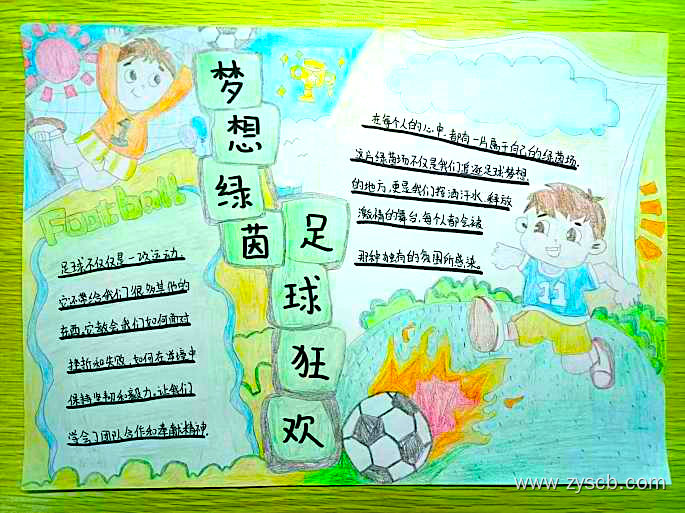 梦想绿茵
足球狂欢
Football
足球不仅仅是一项运动、
它还带给我们很多其他的
东西,它教会我们如何面对
挫折和失败,如何在逆境中
保持坚韧和毅力,让我们
学会了团队合作和奉献精神.
在每个人的心中,都有一片属于自己的绿茵场.
这片绿茵场不仅是我们追逐足球梦想.
的地方,更是我们挥洒汗水、释放
激情的舞台,每个人都会被
那种独向的氛围所感染。
1
11
www.zyscb.com